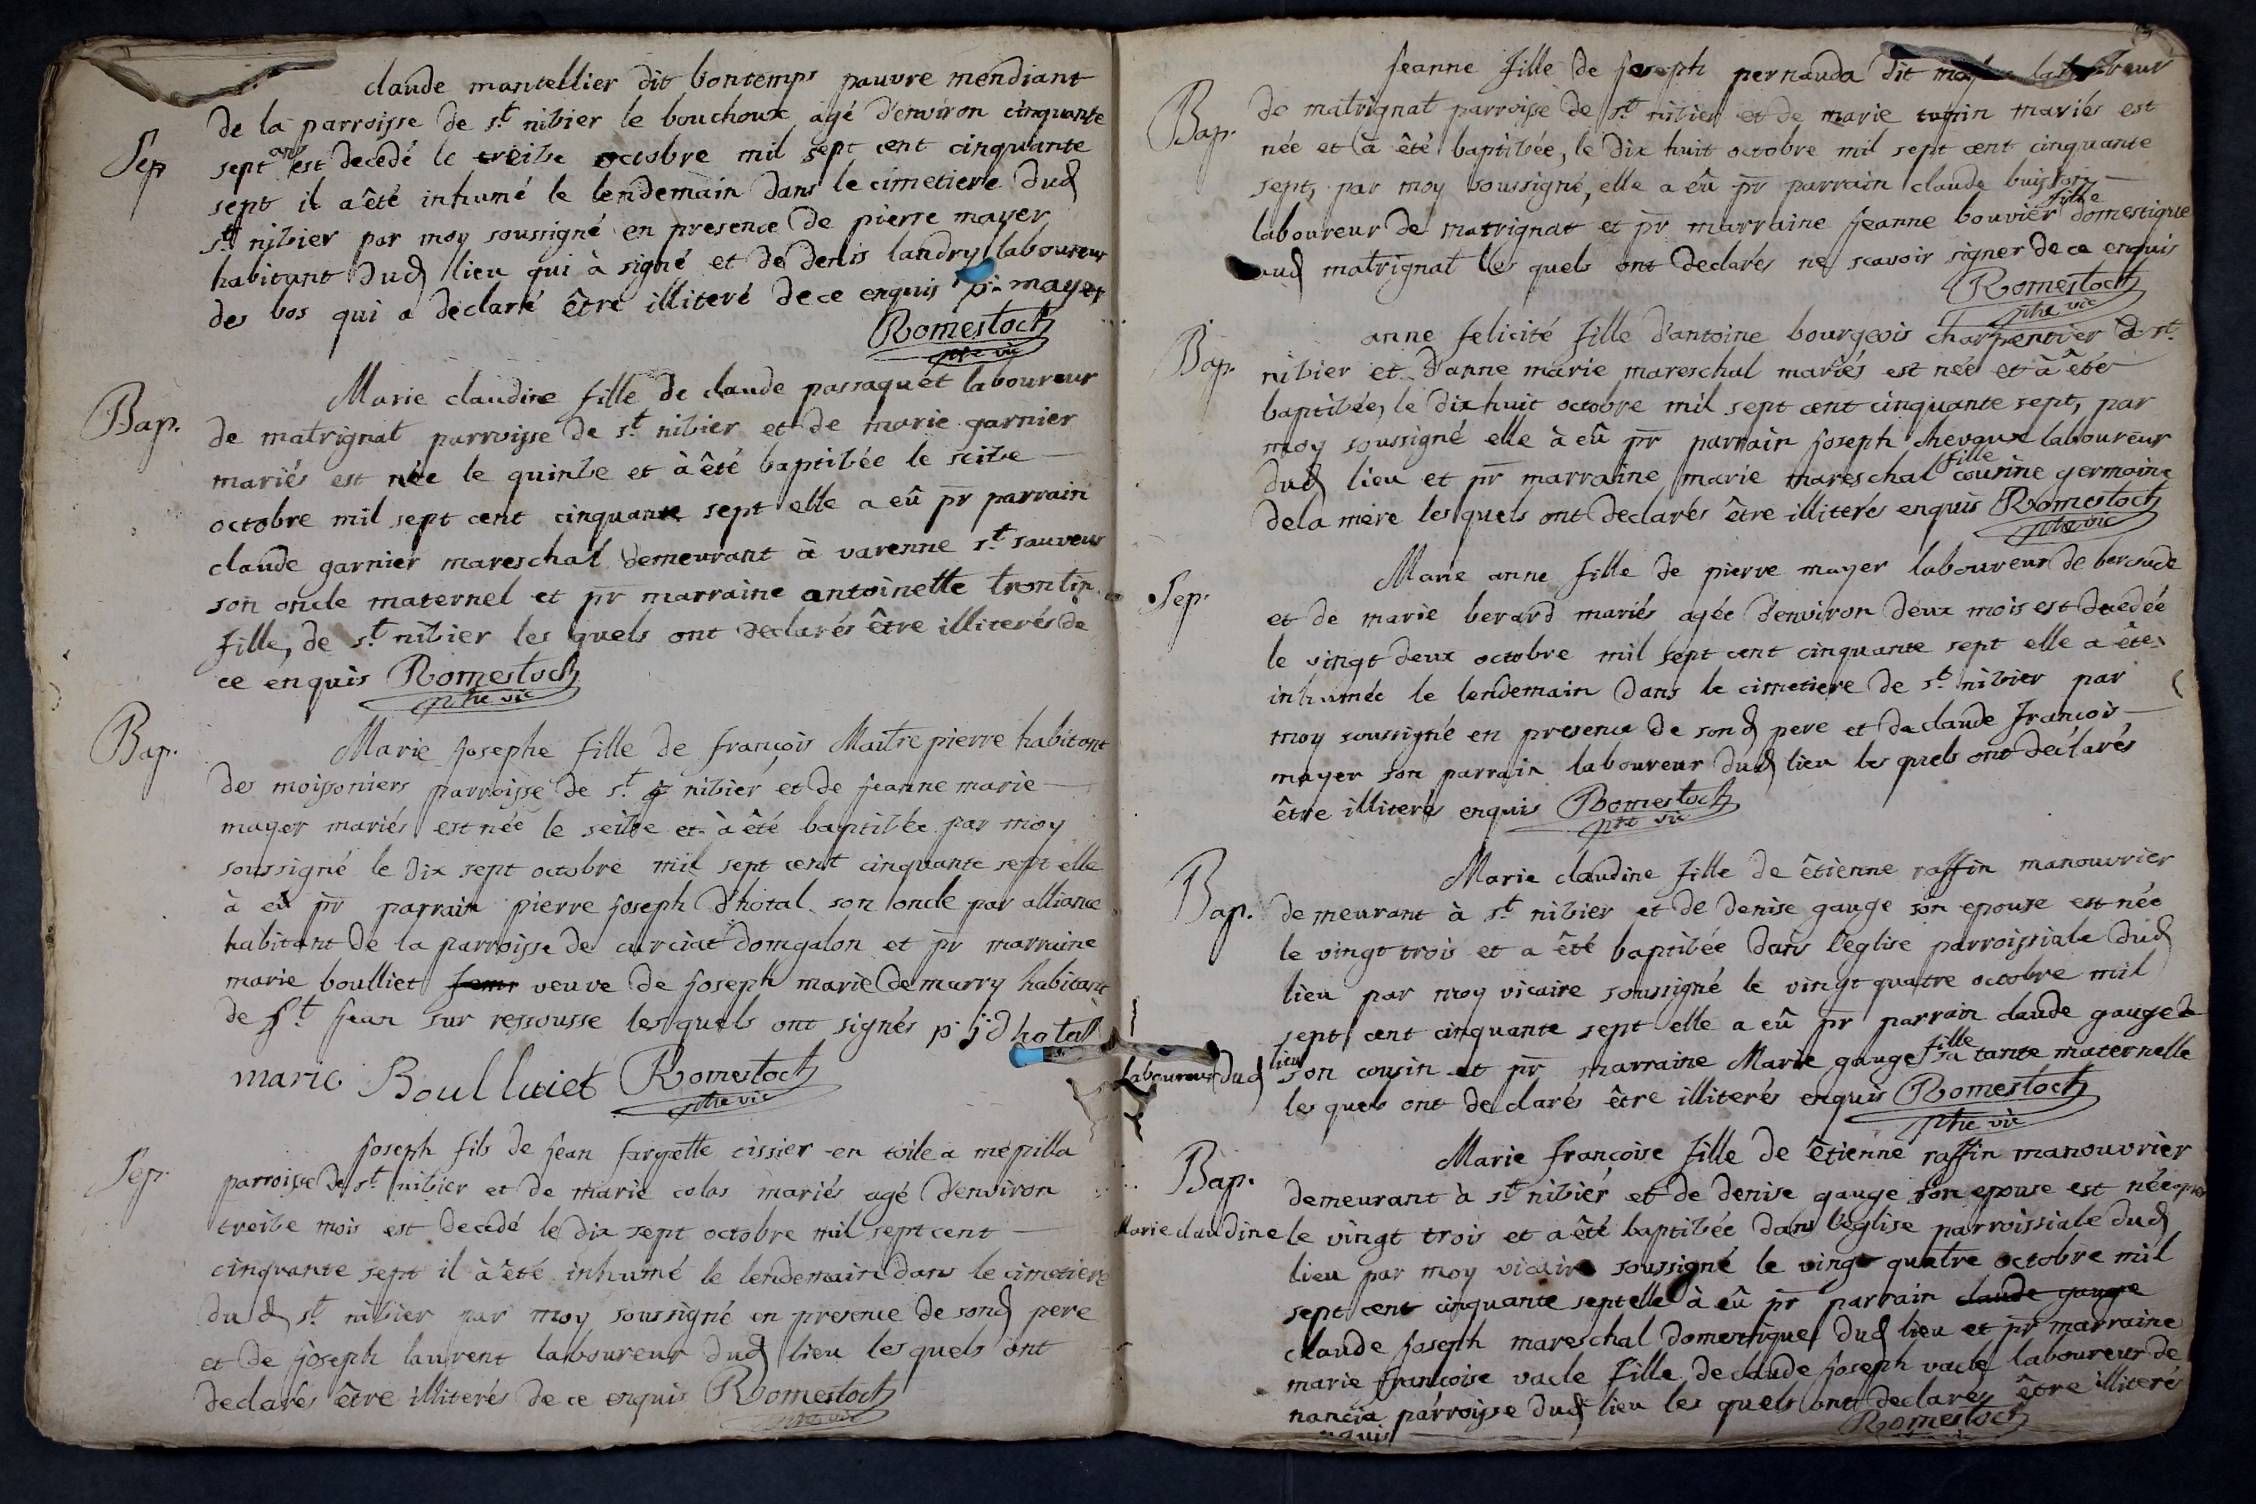 claude mantellier dit bontemps pauvre mendiant
de la parroisse de st nizier le bouchoux agé d'environ cinquante
Sep
sept ans est decedé le treize octobre mil sept cent cinquante
sept il a êté inhumé le lendemain dans le cimetiere dud
st nizier par moy soussigné en presence de pierre mayer
habitant dud lieu qui à signé et de denis landry laboureur
des bos qui a declaré être illiteré de ce enquis p. mayer
Romestoch
ptre vic
Marie claudine fille de claude passaquét laboureur
Bap.
de matrignat parroisse de st nizier et de marie garnier
mariés est née le quinze et à êté baptizée le seize
octobre mil sept cent cinquante sept elle a eû pr parrain
claude garnier mareschal demeurant à varenne st sauveur
son oncle maternel et pr marraine antoinette trontin
fille, de st nizier les quels ont declarés être illiterés de
ce enquis Romestoch
ptre vic
Bap.
Marie Josephe fille de françois Maitrepierre habitant
des moissoniers parroisse de st nizier et de jeanne marie
mayer mariés est née le seize et à êté baptizée par moy
soussigné le dix sept octobre mil sept cent cinquante sept elle
à eû pr parrain pierre joseph d'hotal son oncle par alliance
habitant de la parroisse de curciat domgalon et pr marraine
marie boulliet femr veuve de joseph marie demurry habitant
de st jean sur ressousse les quels ont signés p j dhotal
marie Boulluiet Romestoch
ptre vic
Joseph fils de jean fargette tissier en toile a mepilla
Sep.
parroisse de st nizier et de marie colas mariés agé d'environ
treize mois est decedé le dix sept octobre mil sept cent
cinquante sept il à êté inhumé le lendemain dans le cimetiere
dud st nizier par moy soussigné en presence de sond pere
et de joseph laurent laboureur dud lieu les quels ont
declarés être illiterés de ce enquis Romestoch
ptre vic
Jeanne fille de joseph pernauda dit laboureur
Bap.
de matrignat parroisse de st nizier et de marie tupin mariés est
née et à êté baptizée, le dix huit octobre mil sept cent cinquante
sept, par moy soussigné, elle a eû pr parrain claude buisson
laboureur de matrignat et pr marraine jeanne bouvier fille domestique
aud matrignat les quels ont declarés ne scavoir signer de ce enquis
Romestoch
ptre vic
anne felicité fille d'antoine bourgeois charpentier de st
Bap.
nizier et d'anne marie mareschal mariés est née et à êté
baptizée, le dix huit octobre mil sept cent cinquante sept, par
moy soussigné elle à eû pr parrain joseph chevaux laboureur
dud lieu et pr marraine marie mareschal fille cousine germaine
de la mere les quels ont declarés être illiterés enquis Romestoch
ptre vic
Marie anne fille de pierre mayer laboureur de
Sep.
et de marie berard mariés agée d'environ deux mois est decedée
le vingt deux octobre mil sept cent cinquante sept elle a êté
inhumée le lendemain dans le cimetiere de st nizier par
moy soussigné en presence de sond pere et de claude françois
mayer son parrain laboureur dud lieu les quels ont declarés
être illiterés enquis Romestoch
ptre vic
Marie claudine fille de êtienne raffin manouvrier
Bap.
demeurant à st nizier et de denise gauge son epouse est née
le vingt trois et a êté baptizée dans l'eglise parroissiale dud
lieu par moy vicaire soussigné le vingt quatre octobre mil
sept cent cinquante sept elle a eû pr parrain claude gauge
laboureur dud lieu son cousin et pr marraine Marie gauge fille sa tante maternelle
les quels ont declarés être illiterés enquis Romestoch
ptre vic
Marie françoise fille de êtienne raffin manouvrier
Bap.
demeurant à st nizier et de denise gauge son epouse est née aprés
Marie claudine le vingt trois et a êté baptizée dans l'eglise parroissiale dud
lieu par moy vicaire soussigné le vingt quatre octobre mil
sept cent cinquante sept elle à eû pr parrain claude gauge
claude joseph mareschal domestique dud lieu et pr marraine
marie françoise vacle fille de claude joseph vacle laboureur de
nancia parroisse dud lieu les quels ont declarés être illiterés
enquis Romestoch